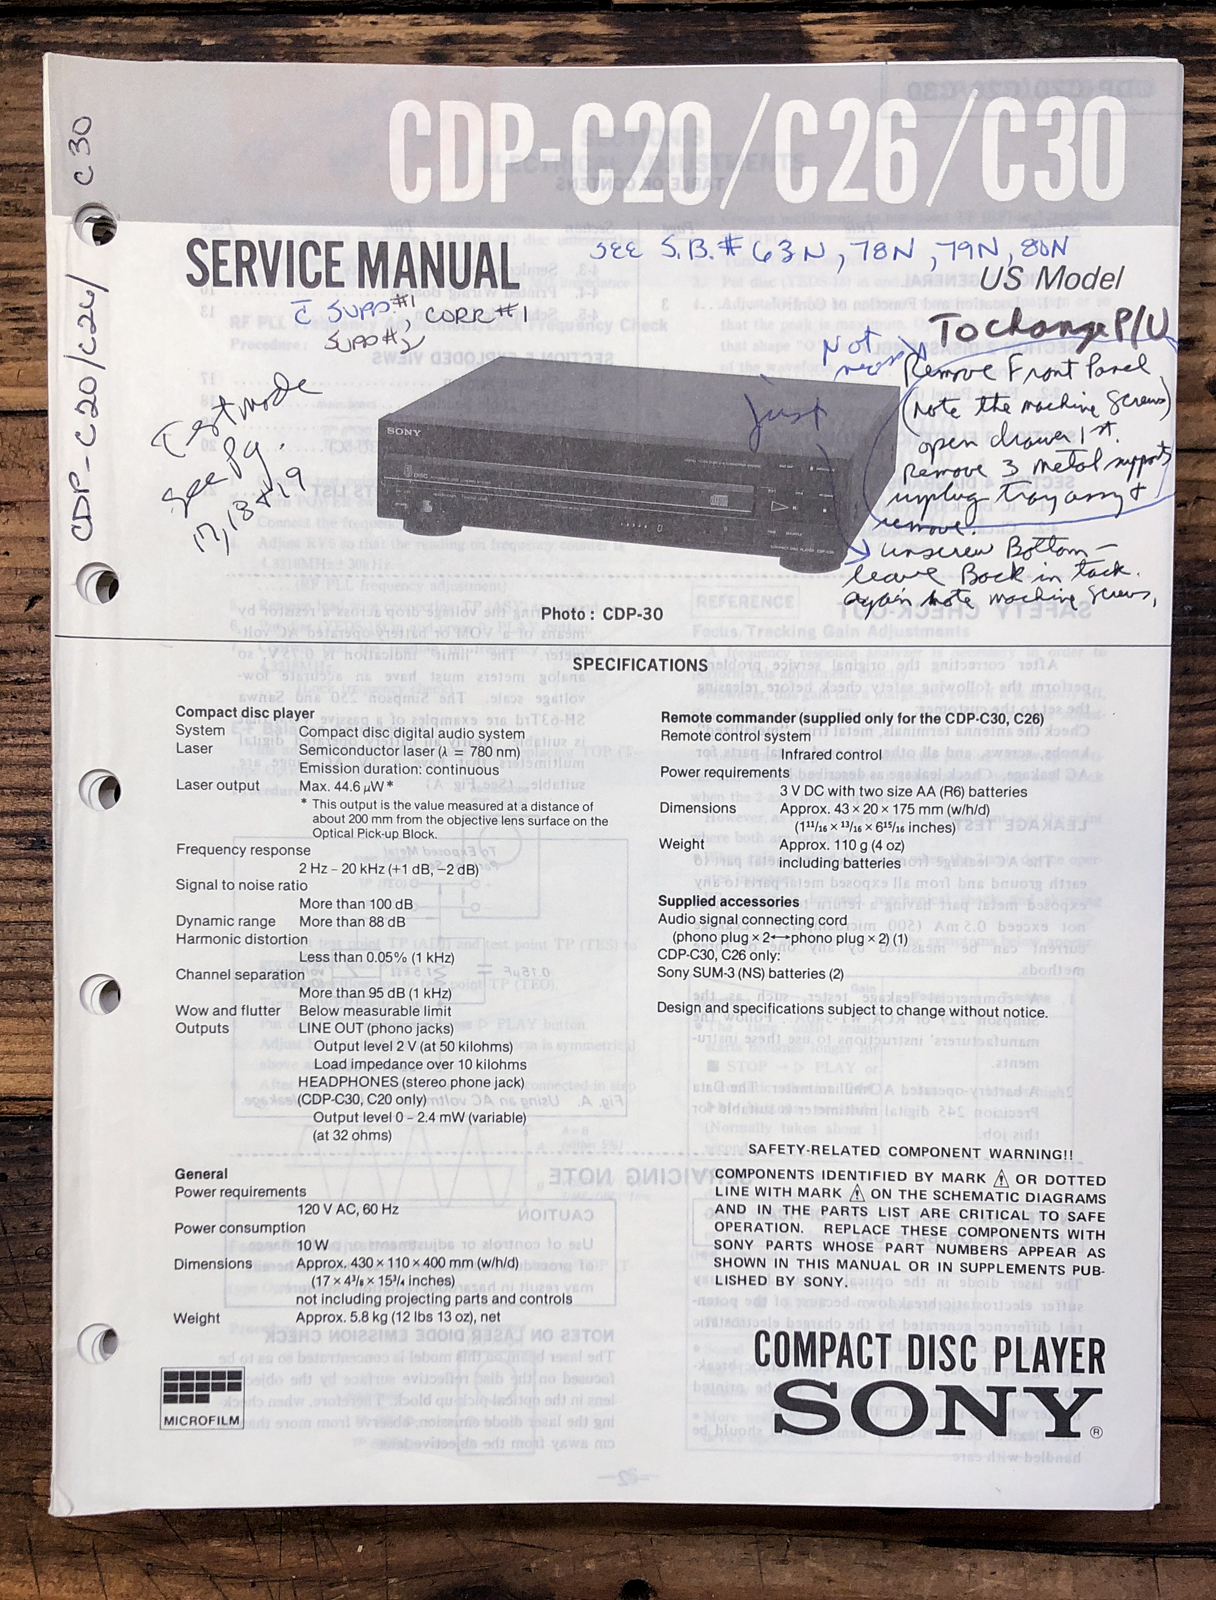 CDP-C20/C26/C30
CDP-C20/C26/ C30
SERVICE MANUAL
SEE S.B.# 63N, 78N, 79N, 80N
US Model
C̄ SUPP#1, CORR#1
SUPP#2
Test mode
see pg.
17, 18 & 19
Not
necess
just
To change P/U
Remove Front Panel
(note the machine screws)
open drawer 1st.
Remove 3 metal supports
unplug tray assy &
remove.
unscrew Bottom –
leave Back in tack.
again note machine screws,
SONY
Photo : CDP-30
SPECIFICATIONS
Compact disc player
System Compact disc digital audio system
Laser Semiconductor laser (λ = 780 nm)
Emission duration: continuous
Laser output Max. 44.6 μW*
* This output is the value measured at a distance of
about 200 mm from the objective lens surface on the
Optical Pick-up Block.
Frequency response
2 Hz – 20 kHz (+1 dB, −2 dB)
Signal to noise ratio
More than 100 dB
Dynamic range More than 88 dB
Harmonic distortion
Less than 0.05% (1 kHz)
Channel separation
More than 95 dB (1 kHz)
Wow and flutter Below measurable limit
Outputs LINE OUT (phono jacks)
Output level 2 V (at 50 kilohms)
Load impedance over 10 kilohms
HEADPHONES (stereo phone jack)
(CDP-C30, C20 only)
Output level 0 – 2.4 mW (variable)
(at 32 ohms)
General
Power requirements
120 V AC, 60 Hz
Power consumption
10 W
Dimensions Approx. 430 × 110 × 400 mm (w/h/d)
(17 × 4³/₈ × 15³/₄ inches)
not including projecting parts and controls
Weight Approx. 5.8 kg (12 lbs 13 oz), net
Remote commander (supplied only for the CDP-C30, C26)
Remote control system
Infrared control
Power requirements
3 V DC with two size AA (R6) batteries
Dimensions Approx. 43 × 20 × 175 mm (w/h/d)
(1¹¹/₁₆ × ¹³/₁₆ × 6¹⁵/₁₆ inches)
Weight Approx. 110 g (4 oz)
including batteries
Supplied accessories
Audio signal connecting cord
(phono plug × 2↔phono plug × 2) (1)
CDP-C30, C26 only:
Sony SUM-3 (NS) batteries (2)
Design and specifications subject to change without notice.
SAFETY-RELATED COMPONENT WARNING!!
COMPONENTS IDENTIFIED BY MARK ⚠ OR DOTTED
LINE WITH MARK ⚠ ON THE SCHEMATIC DIAGRAMS
AND IN THE PARTS LIST ARE CRITICAL TO SAFE
OPERATION. REPLACE THESE COMPONENTS WITH
SONY PARTS WHOSE PART NUMBERS APPEAR AS
SHOWN IN THIS MANUAL OR IN SUPPLEMENTS PUB-
LISHED BY SONY.
MICROFILM
COMPACT DISC PLAYER
SONY®